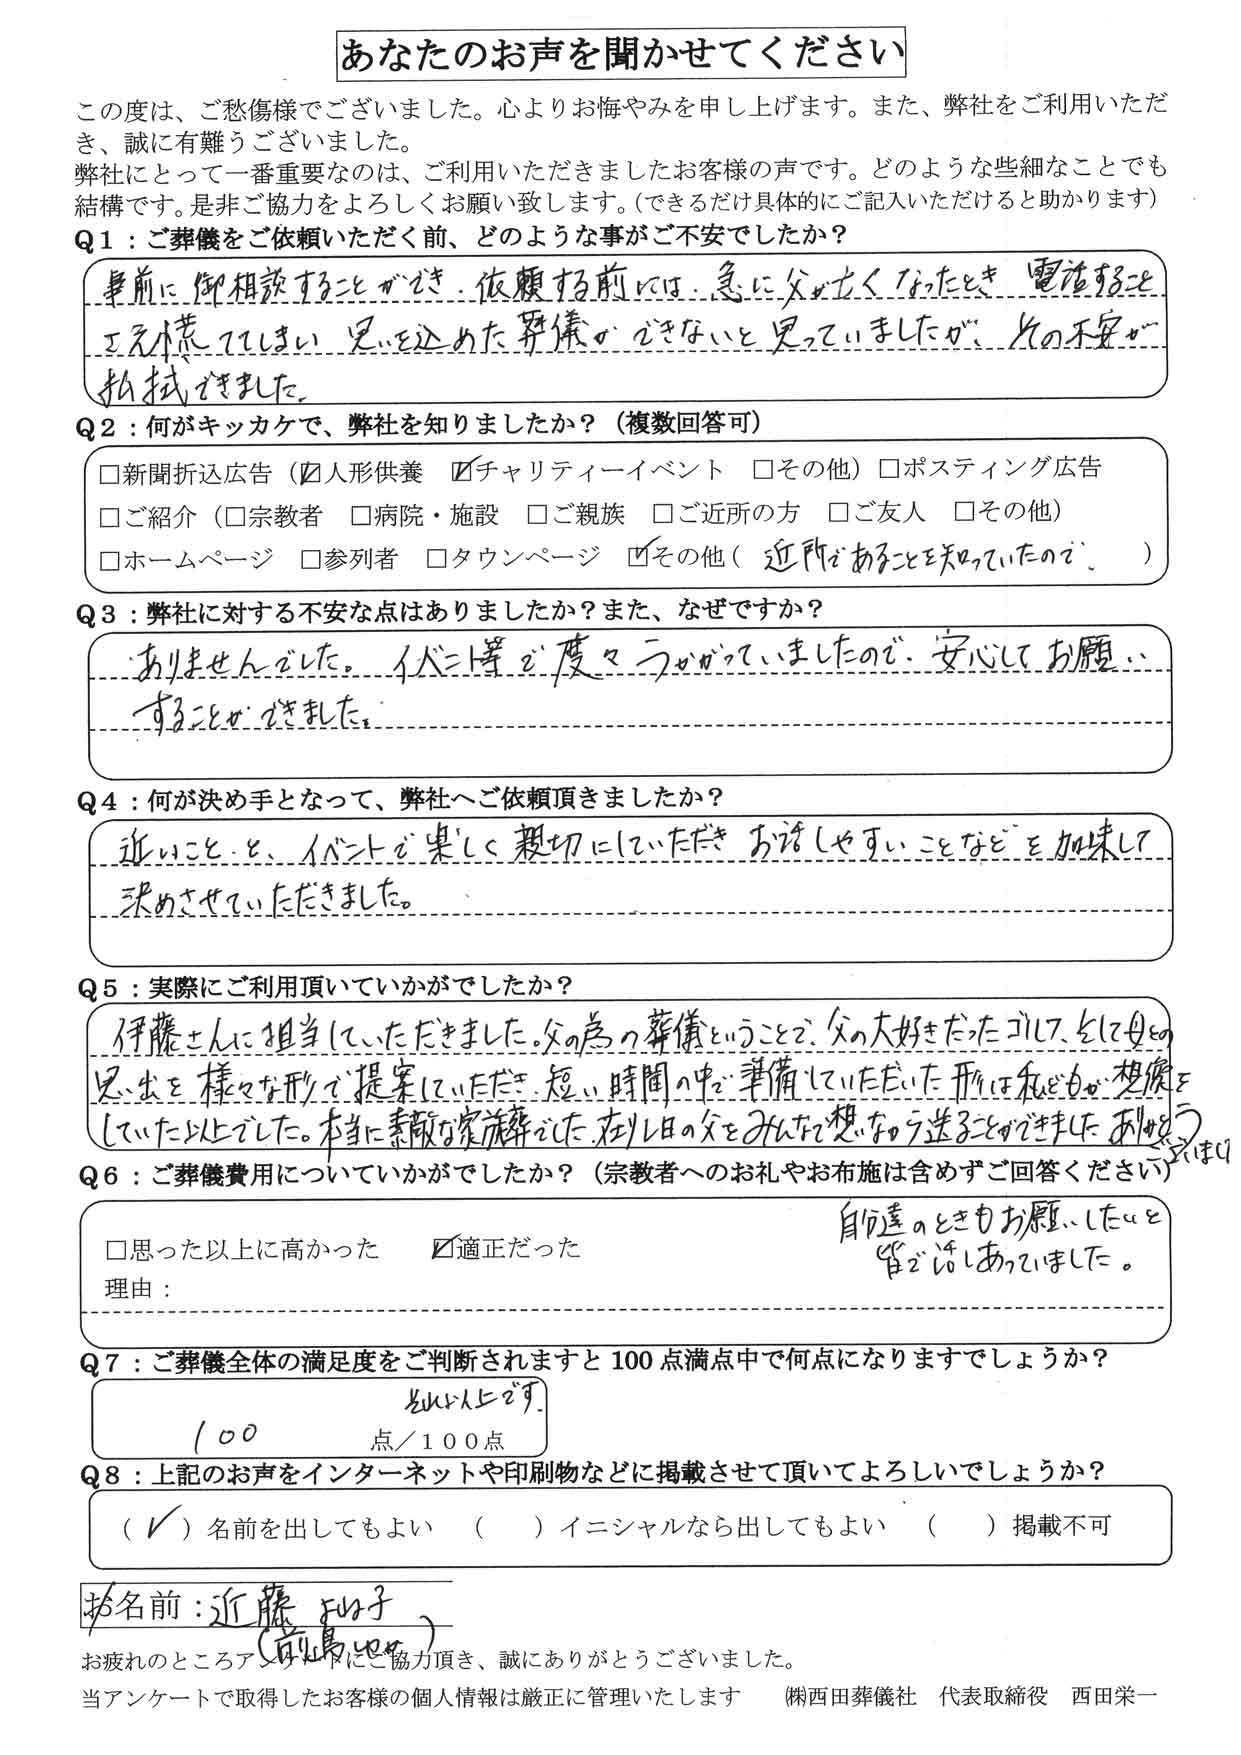 あなたのお声を聞かせてください
この度は、ご愁傷様でございました。心よりお悔やみを申し上げます。また、弊社をご利用いただ
き、誠に有難うございました。
弊社にとって一番重要なのは、ご利用いただきましたお客様の声です。どのような些細なことでも
結構です。是非ご協力をよろしくお願い致します。（できるだけ具体的にご記入いただけると助かります）
Q1：ご葬儀をご依頼いただく前、どのような事がご不安でしたか？
事前に御相談することができ、依頼する前には、急に父が亡くなったとき 電話すること
さえ慌ててしまい 思いを込めた葬儀ができないと思っていましたが、その不安が
払拭できました。
Q2：何がキッカケで、弊社を知りましたか？（複数回答可）
□新聞折込広告（☑人形供養 ☑チャリティーイベント □その他）□ポスティング広告
□ご紹介（□宗教者 □病院・施設 □ご親族 □ご近所の方 □ご友人 □その他）
□ホームページ □参列者 □タウンページ ☑その他（ 近所であることを知っていたので、 ）
Q3：弊社に対する不安な点はありましたか？また、なぜですか？
ありませんでした。イベント等で度々うかがっていましたので、安心してお願い
することができました。
Q4：何が決め手となって、弊社へご依頼頂きましたか？
近いことと、イベントで楽しく親切にしていただきお話しやすいことなどを加味して
決めさせていただきました。
Q5：実際にご利用頂いていかがでしたか？
伊藤さんに担当していただきました。父の為の葬儀ということで、父の大好きだったゴルフ、そして母との
思い出を様々な形で提案していただき、短い時間の中で準備していただいた形は私どもが想像を
していた以上でした。本当に素敵な家族葬でした。在りし日の父をみんなで想いながら送ることができました ありがとう
ございました
Q6：ご葬儀費用についていかがでしたか？（宗教者へのお礼やお布施は含めずご回答ください）
自分達のときもお願いしたいと
皆で話しあっていました。
□思った以上に高かった ☑適正だった
理由：
Q7：ご葬儀全体の満足度をご判断されますと100点満点中で何点になりますでしょうか？
それ以上です。
100 点／100点
Q8：上記のお声をインターネットや印刷物などに掲載させて頂いてよろしいでしょうか？
（✓）名前を出してもよい （ ）イニシャルなら出してもよい （ ）掲載不可
お名前：近藤 子
（前島 ）
お疲れのところアンケートにご協力頂き、誠にありがとうございました。
当アンケートで取得したお客様の個人情報は厳正に管理いたします ㈱西田葬儀社 代表取締役 西田栄一